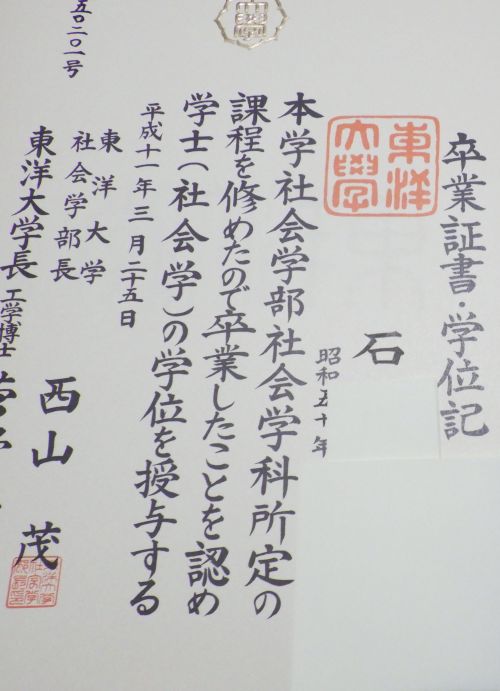 卒業証書・学位記
東洋
大學
石
昭和五十年
本学社会学部社会学科所定の
課程を修めたので卒業したことを認め
学士(社会学)の学位を授与する
平成十一年三月二十五日
東洋大学
社会学部長
西山茂
東洋大学長
工学博士
五〇二〇一号